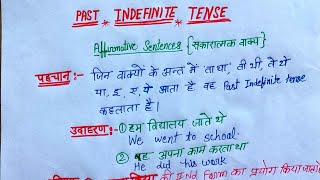 PAST * INDEFINITE TENSE
Affirmative Sentences {सकारात्मक वाक्य}
पहचान:- जिन वाक्यों के अन्त में ता था, ती थी, ते थे
या, इ, ए, ये आता है वह Past Indefinite tense
कहलाता है।
उदाहरण:- ① हम विद्यालय जाते थे
We went to school.
② वह अपना काम करता था
He did his work
की IInd Form का प्रयोग किया जाता